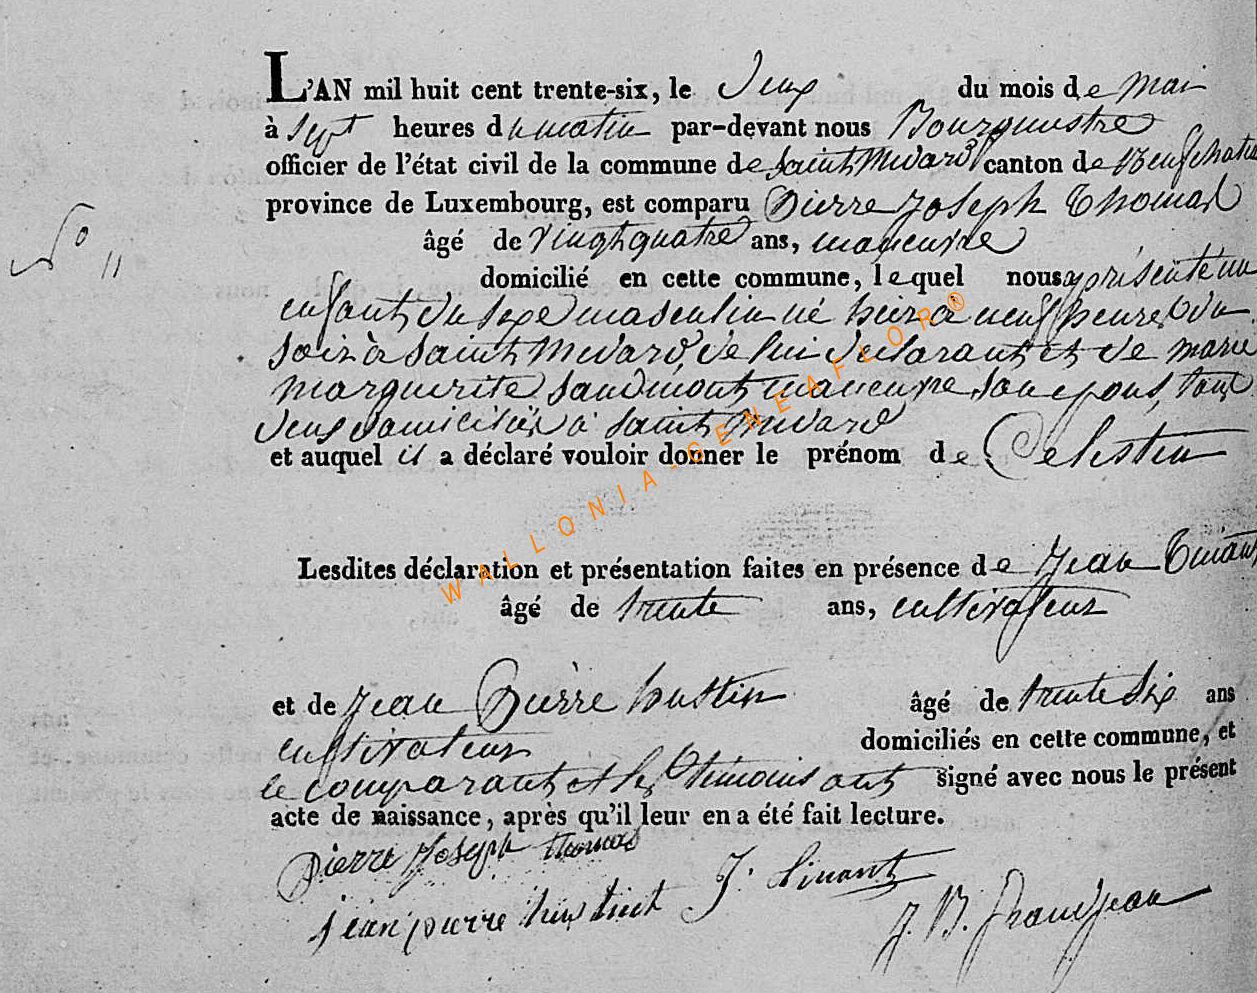 L'AN mil huit cent trente-six, le deux du mois de mai
à sept heures du matin par-devant nous Bourgmestre
officier de l'état civil de la commune de saint medard canton de Neufchateau
province de Luxembourg, est comparu Pierre Joseph Thomas
âgé de vingt quatre ans, maneuvre
domicilié en cette commune, lequel nous a présenté un
N° 11
enfant du sexe masculin né hier a neuf heures du
soir à saint medard de lui declarant et de marie
marguerite maneuvre son epouse, tous
deux domiciliés à saint medard
et auquel il a déclaré vouloir donner le prénom de Celestin
WALLONIA-GENEAFLOR®
Lesdites déclaration et présentation faites en présence de Jean
âgé de trente ans, cultivateur
et de Jean Pierre hustin âgé de trente six ans
cultivateur domiciliés en cette commune, et
le comparant et les témoins ont signé avec nous le présent
acte de naissance, après qu'il leur en a été fait lecture.
Pierre Joseph thomas
jean pierre J.
J. B. Grandjean